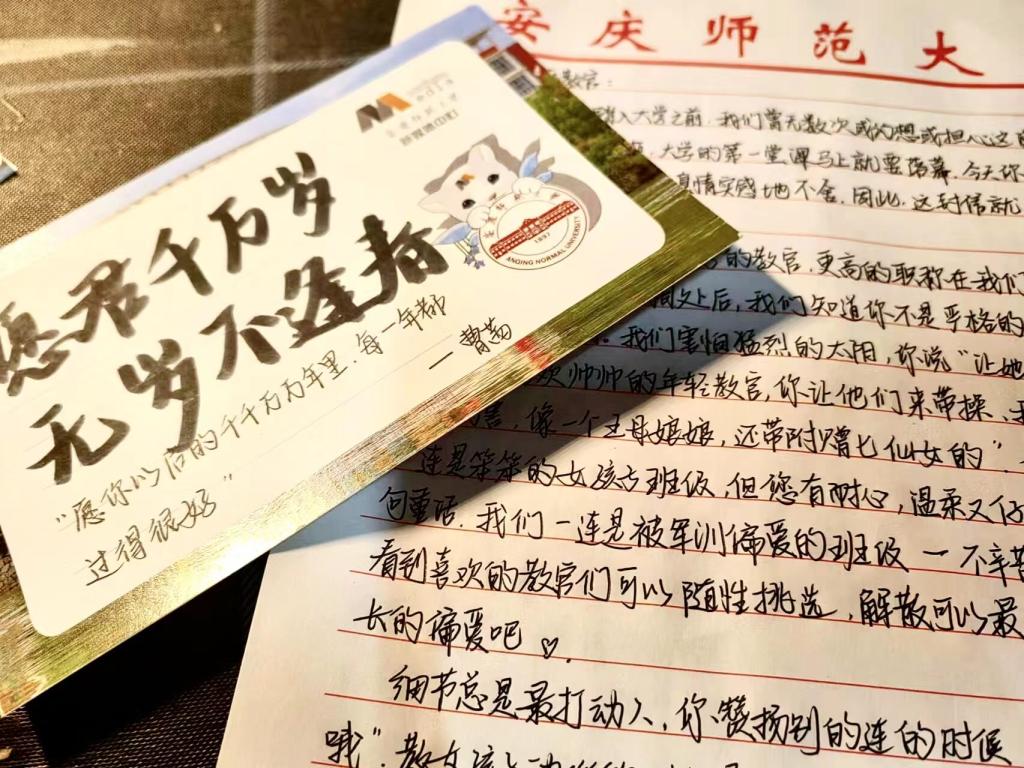 愿君千万岁
无岁不逢春
“愿你以后的千千万万年里，每一年都
过得很好”
ANQING NORMAL UNIVERSITY
1897
安庆师范大
教官：
入大学之前，我们曾无数次或幻想或担心这
大学的第一堂课马上就要落幕，今天你
真情实感地不舍，因此，这封信就
的教官，更高的职称在我们
后，我们知道你不是严格的
我们害怕猛烈的太阳，你说“让她
欢帅帅的年轻教官，你让他们来带操、我
像一个王母娘娘，还带附赠七仙女的”.
连是笨笨的女孩占班级，但您有耐心，温柔又仔
句童话，我们一连是被军训偏爱的班级一不辛苦
看到喜欢的教官们可以随性挑选，解散可以最
长的偏爱吧♡.
细节总是最打动人，你赞扬别的连的时候
哦”.